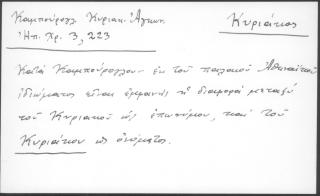 Καμπούρογλ. Κυριακ. Ἀγκων. Κυριάτιος
Ἠπ. Χρ. 3, 223
Κατὰ Καμπούρογλου ἐκ τοῦ παλαιοῦ Ἀθηναϊκοῦ
ἰδιώματος εἶναι ἐμφανὴς ἡ διαφορὰ μεταξὺ
τοῦ Κυριακοῦ ὡς ἐπωνύμου, καὶ τοῦ
Κυριάτιου ὡς ὀνόματος.